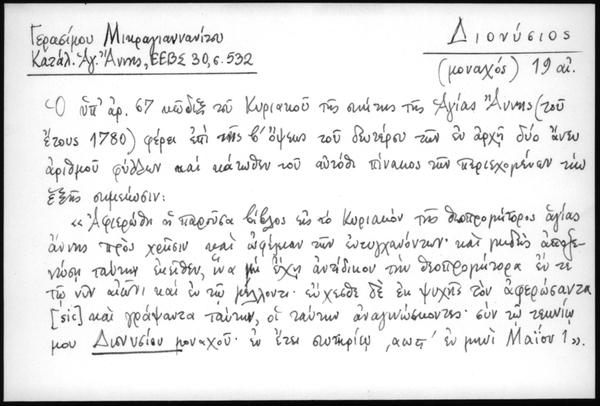 Γερασίμου Μικραγιαννανίτου
Κατάλ. Ἁγ. Ἄννης, ΕΕΒΣ 30, σ. 532
Διονύσιος
(μοναχός) 19 αἰ.
Ὁ ὑπ' ἀρ. 67 κῶδιξ τοῦ Κυριακοῦ τῆς σκήτης τῆς Ἁγίας Ἄννης (τοῦ
ἔτους 1780) φέρει ἐπὶ τῆς β' ὄψεως τοῦ δευτέρου τῶν ἐν ἀρχῇ δύο ἄνευ
ἀριθμοῦ φύλλων καὶ κάτωθεν τοῦ αὐτόθι πίνακος τῶν περιεχομένων τὴν
ἑξῆς σημείωσιν:
« Ἀφιερώθη ἡ παροῦσα βίβλος εἰς τὸ Κυριακὸν τῆς θεοπρομήτορος ἁγίας
ἄννης πρὸς χρῆσιν καὶ ὠφέλειαν τῶν ἐντυγχανόντων· καὶ μηδεὶς ἀποξε-
νώσῃ ταύτην ἐκεῖθεν, ἵνα μὴ ἔχῃ ἀντίδικον τὴν θεοπρομήτορα ἔν τε
τῷ νῦν αἰῶνι καὶ ἐν τῷ μέλλοντι· εὔχεσθε δὲ ἐκ ψυχῆς τὸν ἀφερώσαντα
[sic] καὶ γράψαντα ταύτην, οἱ ταύτην ἀναγινώσκοντες· σὺν τῷ τεκνίῳ
μου Διονυσίου μοναχοῦ· ἐν ἔτει σωτηρίῳ ͵αωπ' ἐν μηνὶ Μαΐου 1 ».